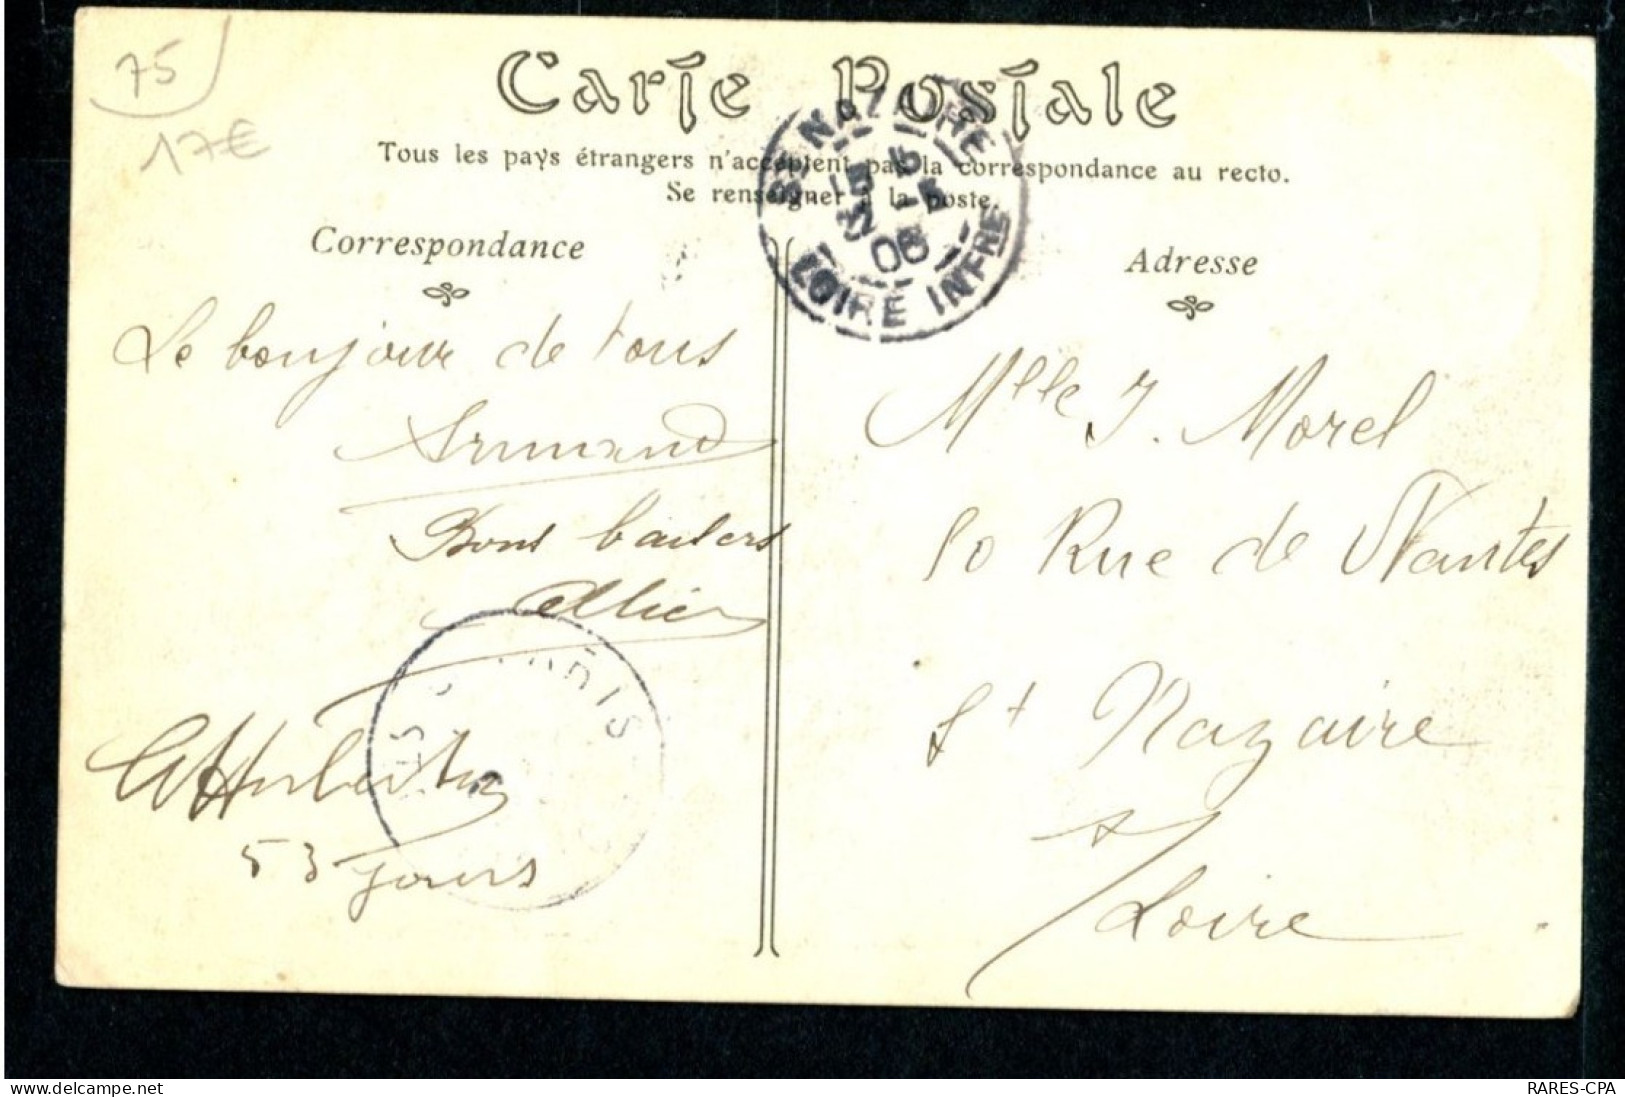 75
17€
Carte Postale
Tous les pays étrangers n'acceptent pas la correspondance au recto.
Se renseigner à la poste.
Correspondance
Le bonjour de tous
Armand
Bons baisers
53 jours
Adresse
Mlle J. Morel
50 Rue de Nantes
St Nazaire
s/ Loire
ST NAZAIRE
06
LOIRE INFRE
delcampe.net
RARES-CPA